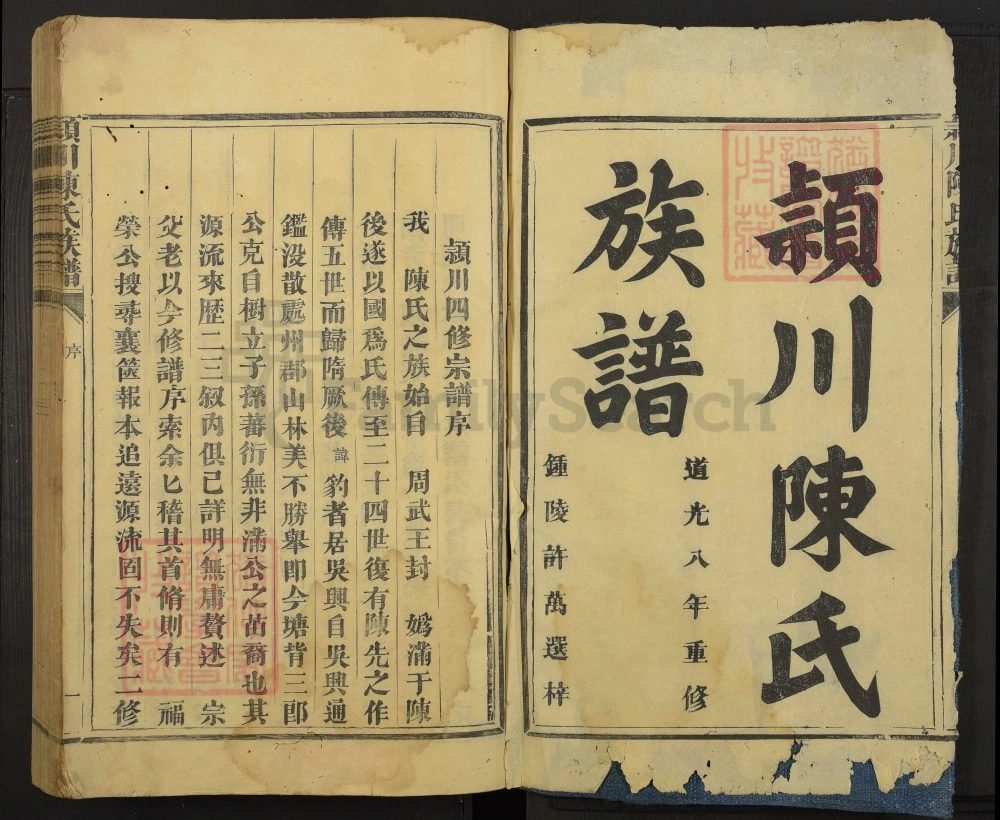 頴川陳氏
族譜
道光八年重修
鍾陵許萬選梓
頴川四修宗譜序
我 陳氏之族始自 周武王封 媯滿于陳
後遂以國爲氏傳至二十四世復有陳先之作
傳五世而歸隋厥後諱豹者居吳興自吳興通
鑑没散處州郡山林美不勝舉即今塘背三郎
公克自樹立子孫蕃衍無非滿公之苗裔也其
源流來歴二三叙内俱已詳明無庸贅述 宗
父老以今修譜序索余匕稽其首脩則有 福
榮公搜尋襄篋報本追遠源流固不失矣二修
頴川陳氏族譜
序
一
FamilySearch